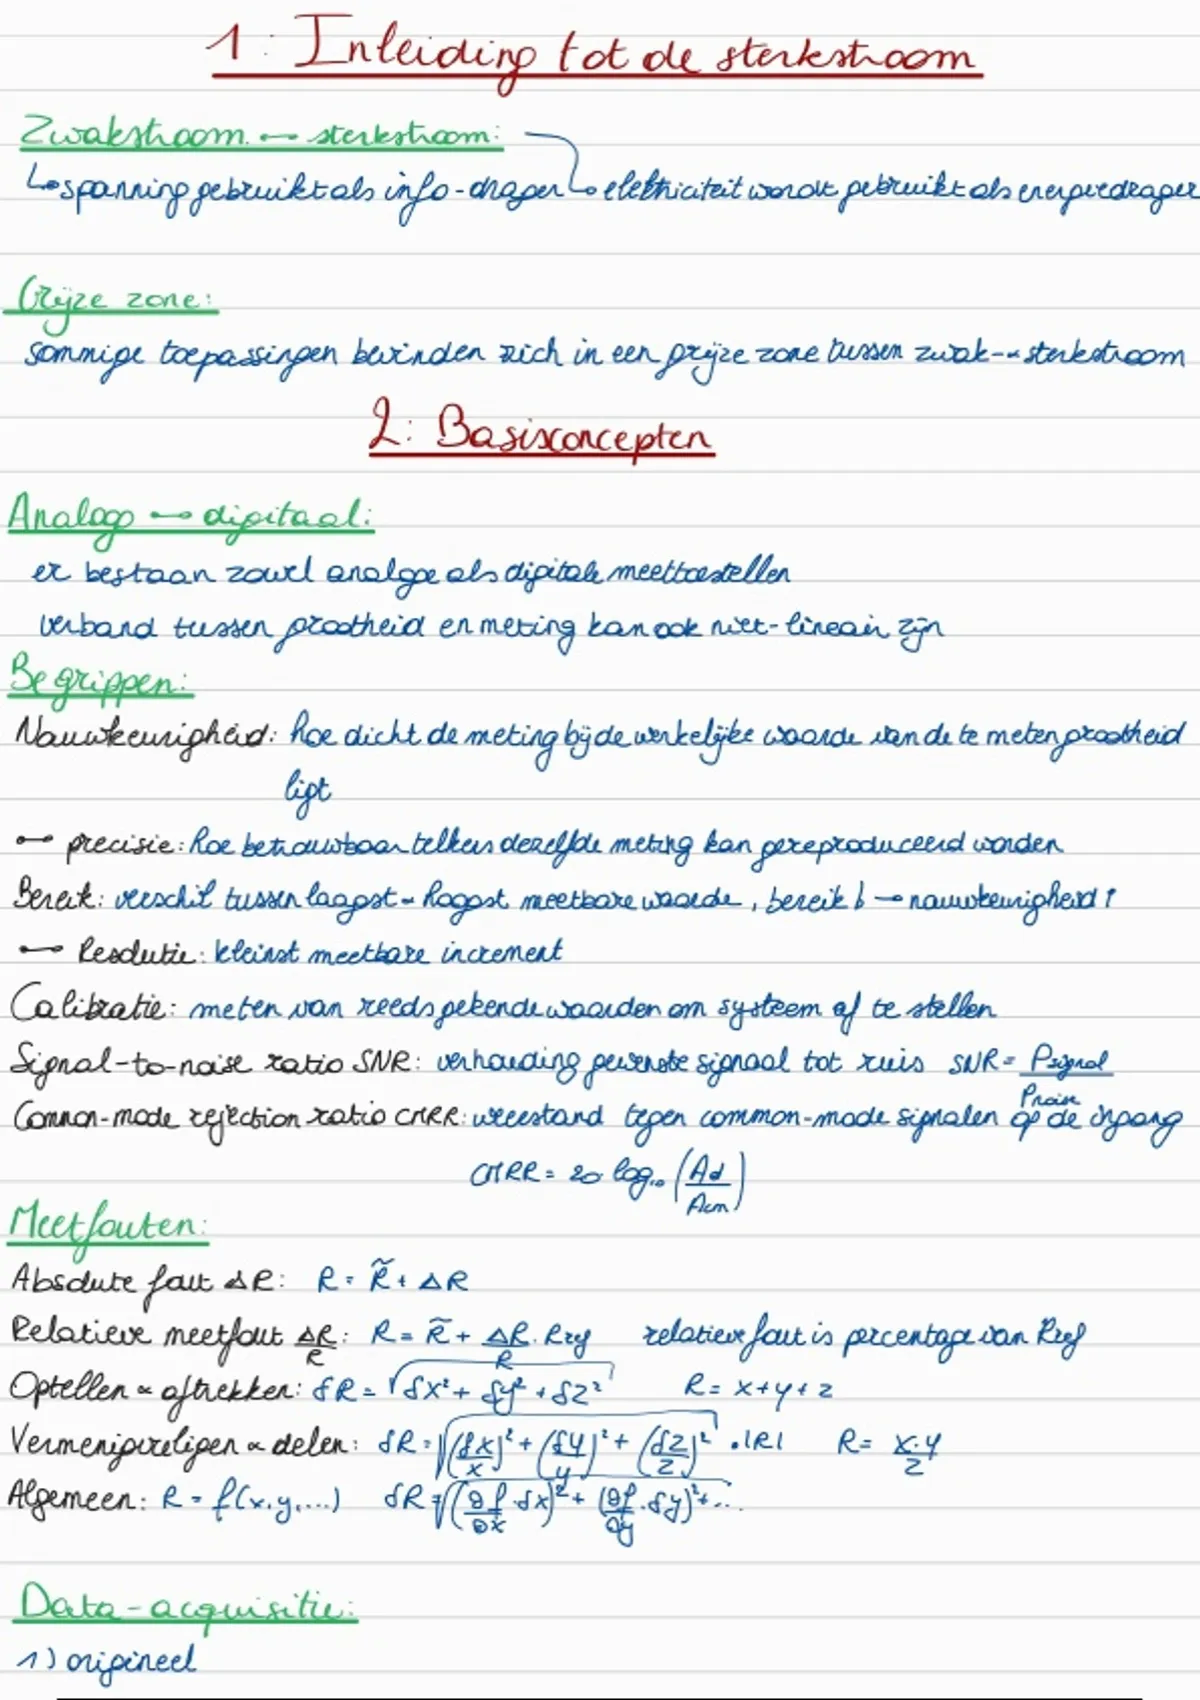 1: Inleiding tot de sterkstroom
Zwakstroom ↔ sterkstroom:
↳ spanning gebruikt als info-drager ↳ elektriciteit wordt gebruikt als energiedrager
Grijze zone:
sommige toepassingen bevinden zich in een grijze zone tussen zwak- & sterkstroom
2: Basisconcepten
Analoog ↔ digitaal:
er bestaan zowel analoge als digitale meettoestellen
verband tussen grootheid en meting kan ook niet-lineair zijn
Begrippen:
Nauwkeurigheid: hoe dicht de meting bij de werkelijke waarde van de te meten grootheid
ligt
↔ precisie: hoe betrouwbaar telkens dezelfde meting kan gereproduceerd worden
Bereik: verschil tussen laagst & hoogst meetbare waarde, bereik ↓ → nauwkeurigheid ↑
↔ Resolutie: kleinst meetbare increment
Calibratie: meten van reeds gekende waarden om systeem af te stellen
Signal-to-noise ratio SNR: verhouding gewenste signaal tot ruis SNR = Psignal / Pnoise
Common-mode rejection ratio CMRR: weerstand tegen common-mode signalen op de ingang
CMRR = 20 log₁₀ (Ad / Acm)
Meetfouten:
Absolute fout ΔR: R = R̃ + ΔR
Relatieve meetfout ΔR/R: R = R̃ + ΔR/R · Rref relatieve fout is percentage van Rref
Optellen & aftrekken: δR = √(δx² + δy² + δz²) R = x + y + z
Vermenigvuldigen & delen: δR = √((δx/x)² + (δy/y)² + (δz/z)²) · |R| R = x·y/z
Algemeen: R = f(x,y,...) δR = √((∂f/∂x · δx)² + (∂f/∂y · δy)² + ...
Data-acquisitie:
1) origineel